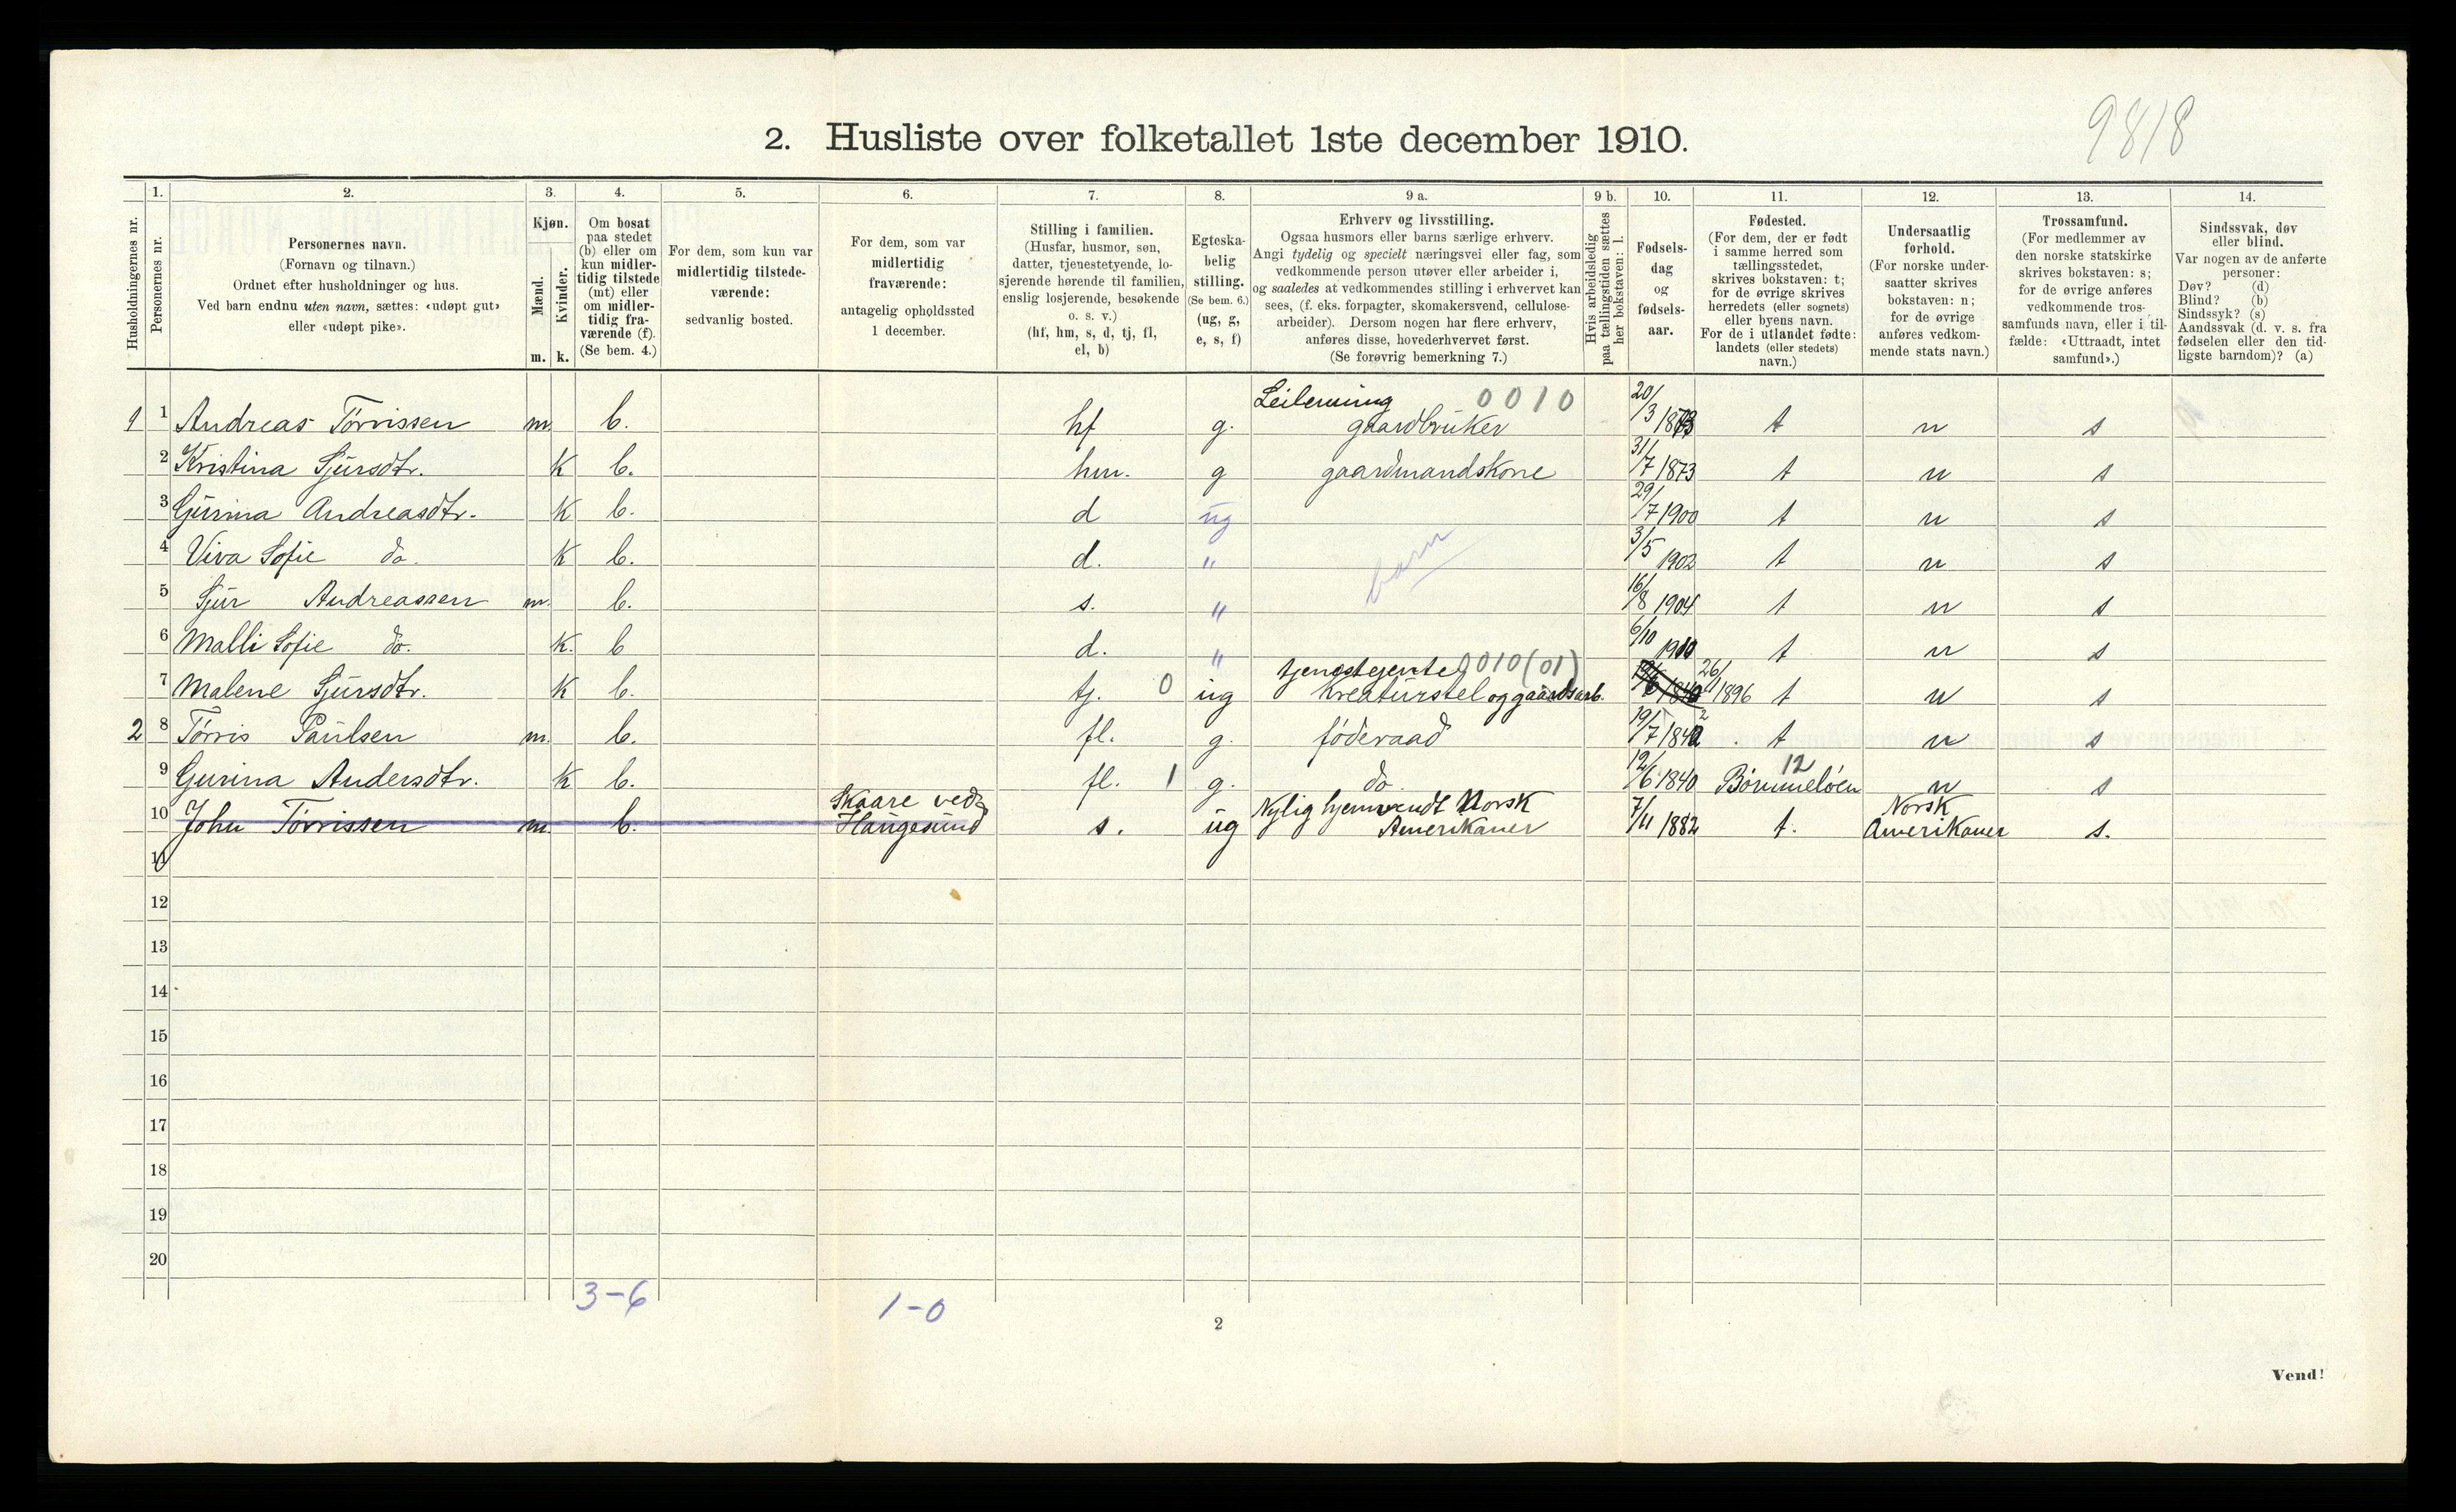 9818
2. Husliste over folketallet 1ste december 1910.
1. 2. 3. 4. 5. 6. 7. 8. 9 a. 9 b. 10. 11. 12. 13. 14.
Husholdningernes nr.
Personernes nr.
Personernes navn.
(Fornavn og tilnavn.)
Ordnet efter husholdninger og hus.
Ved barn endnu uten navn, sættes: «udøpt gut»
eller «udøpt pike».
Kjøn.
Mænd.
Kvinder.
m. k.
Om bosat
paa stedet
(b) eller om
kun midler-
tidig tilstede
(mt) eller
om midler-
tidig fra-
værende (f).
(Se bem. 4.)
For dem, som kun var
midlertidig tilstede-
værende:
sedvanlig bosted.
For dem, som var
midlertidig
fraværende:
antagelig opholdssted
1 december.
Stilling i familien.
(Husfar, husmor, søn,
datter, tjenestetyende, lo-
sjerende hørende til familien,
enslig losjerende, besøkende
o. s. v.)
(hf, hm, s, d, tj, fl,
el, b)
Egteska-
belig
stilling.
(Se bem. 6.)
(ug, g,
e, s, f)
Erhverv og livsstilling.
Ogsaa husmors eller barns særlige erhverv.
Angi tydelig og specielt næringsvei eller fag, som
vedkommende person utøver eller arbeider i,
og saaledes at vedkommendes stilling i erhvervet kan
sees, (f. eks. forpagter, skomakersvend, cellulose-
arbeider). Dersom nogen har flere erhverv,
anføres disse, hovederhvervet først.
(Se forøvrig bemerkning 7.)
Hvis arbeidsledig
paa tællingstiden sættes
her bokstaven: l.
Fødsels-
dag
og
fødsels-
aar.
Fødested.
(For dem, der er født
i samme herred som
tællingsstedet,
skrives bokstaven: t;
for de øvrige skrives
herredets (eller sognets)
eller byens navn.
For de i utlandet fødte:
landets (eller stedets)
navn.)
Undersaatlig
forhold.
(For norske under-
saatter skrives
bokstaven: n;
for de øvrige
anføres vedkom-
mende stats navn.)
Trossamfund.
(For medlemmer av
den norske statskirke
skrives bokstaven: s;
for de øvrige anføres
vedkommende tros-
samfunds navn, eller i til-
fælde: «Uttraadt, intet
samfund».)
Sindssvak, døv
eller blind.
Var nogen av de anførte
personer:
Døv? (d)
Blind? (b)
Sindssyk? (s)
Aandssvak (d. v. s. fra
fødselen eller den tid-
ligste barndom)? (a)
Leilenning 0010
1 1 Andreas Tørrissen m. b. hf g. gaardbruker 20/3 1873 t n s
2 Kristina Sjursdtr. K b. hm. g gaardmandskone 31/7 1873 t n s
3 Gurina Andreasdtr. K b. d ug 29/7 1900 t n s
4 Viva Sofie do. K b. d. " barn 3/5 1902 t n s
5 Sjur Andreassen m. b. s. " 16/8 1904 t n s
6 Malli Sofie do. K. b d. " 6/10 1910 t n s
tjenestejente 0010(01)
7 Malene Sjursdtr. K b. tj. 0 ug Kreaturstel og gaardsarb. 26/11 1896 t n s
2 8 Tørris Paulsen m. b. fl. g. føderaad 19/7 1842 t n s
12
9 Gurina Andersdtr. K b. fl. 1 g. do 12/6 1840 Bømmeløen n s
Skaare ved Nylig hjemvendt Norsk Norsk
10 John Tørrissen m. b. Haugesund s. ug Amerikaner 7/11 1882 t. Amerikaner s.
11
12
13
14
15
16
17
18
19
20
3-6 1-0
2
Vend!